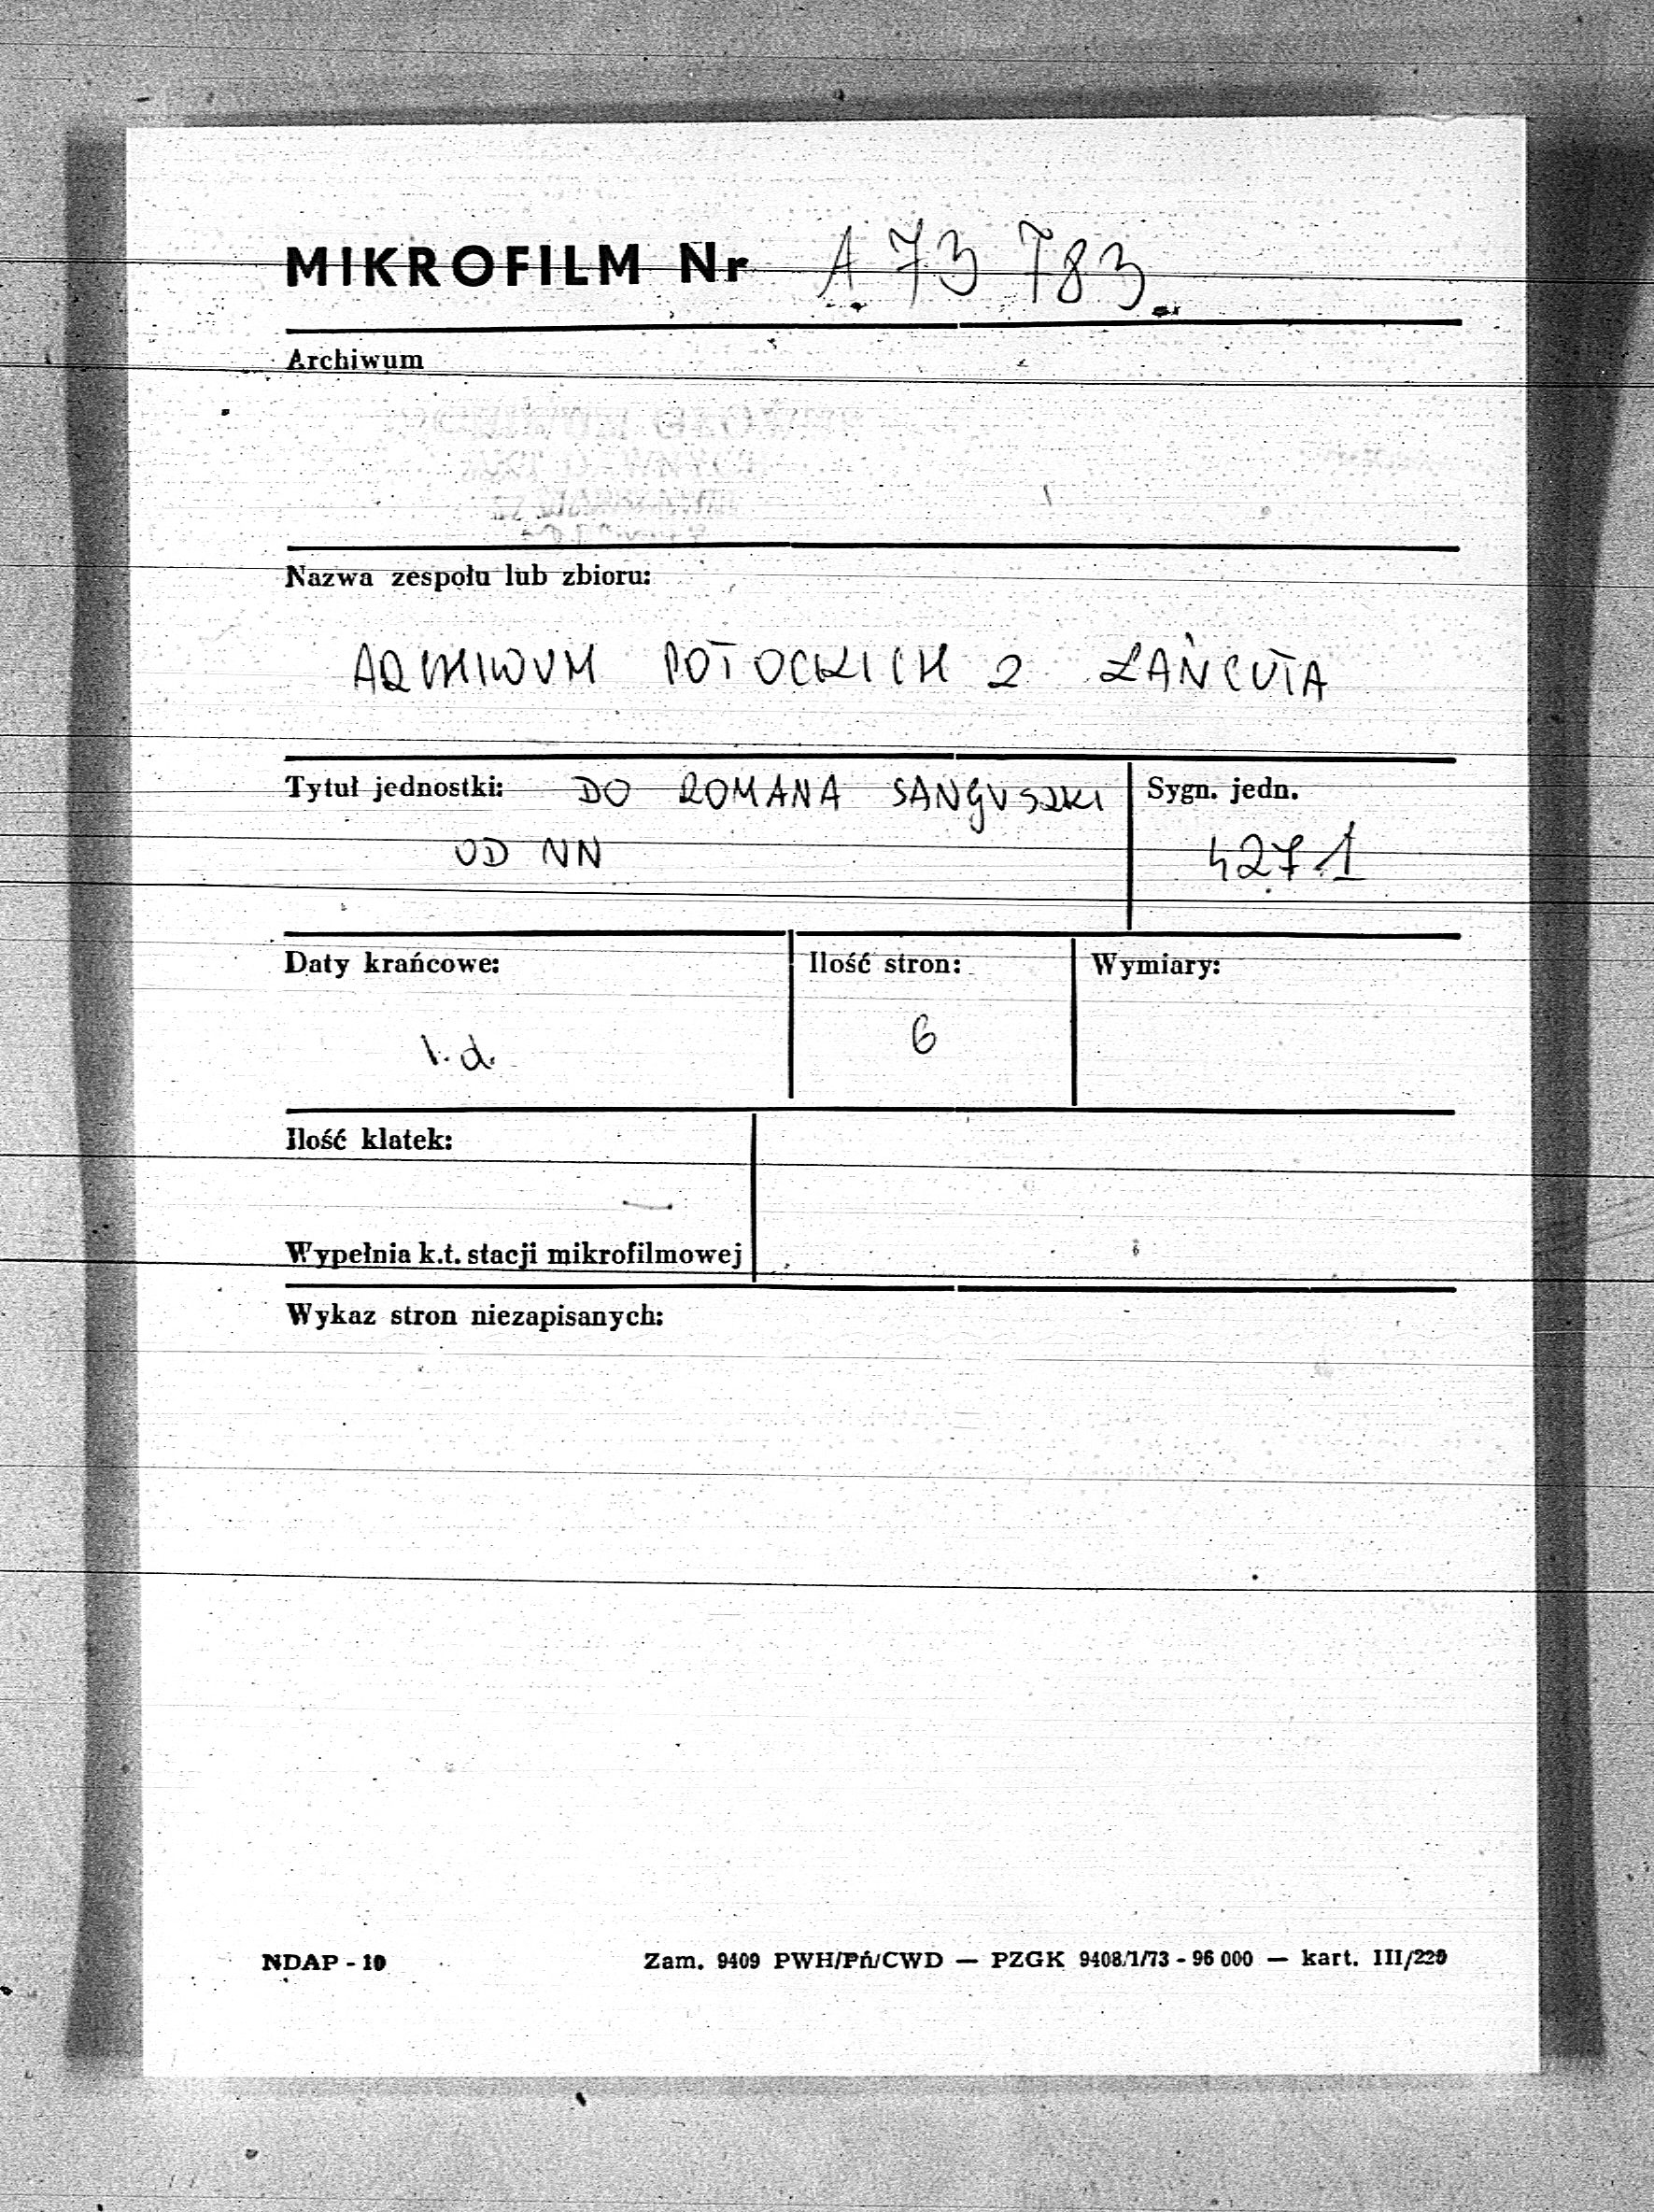 MIKROFILM Nr A 73 783
Archiwum
Nazwa zespołu lub zbioru:
ARCHIWUM POTOCKICH Z ŁAŃCUTA
Tytuł jednostki: DO ROMANA SANGUSZKI
OD NN
Sygn. jedn.
4271
Daty krańcowe:
Ilość stron:
Wymiary:
6
Ilość klatek:
Wypełnia k.t. stacji mikrofilmowej
Wykaz stron niezapisanych:
NDAP - 10 Zam. 9409 PWH/Pń/CWD — PZGK 9408/1/73 - 96 000 — kart. III/229